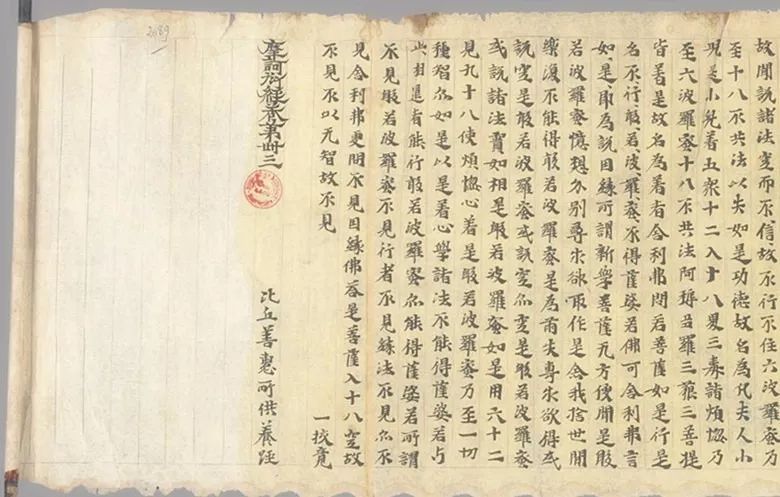 故聞說諸法空而不信故不行不住六波羅蜜乃
至十八不共法以失如是功德故名為凡夫人小
兒是小兒著五衆十二入十八界三毒諸煩惱乃
至六波羅蜜十八不共法阿耨多羅三藐三菩提
皆著是故名為著者舍利弗問若菩薩如是行是
名不行般若波羅蜜不得薩婆若佛可舍利弗言
如是即為說因緣所謂新學菩薩无方便聞是般
若波羅蜜憶想分別尋求欲取作是念我捨世間
樂復不能得般若波羅蜜是為兩失專求欲得或
說空是般若波羅蜜或說空亦空是般若波羅蜜
或說諸法實如相是般若波羅蜜如是用六十二
見九十八使煩惱心著是般若波羅蜜乃至一切
種智亦如是以是著心學諸法不能得薩婆若与
此相違者能行般若波羅蜜亦能得薩婆若所謂
不見般若波羅蜜不見行者不見緣法不見亦不
見舍利弗更問不見因緣佛荅是菩薩入十八空故
不見不以无智故不見
一挍竟
摩訶衍經卷第卌三
比丘善惠所供養經